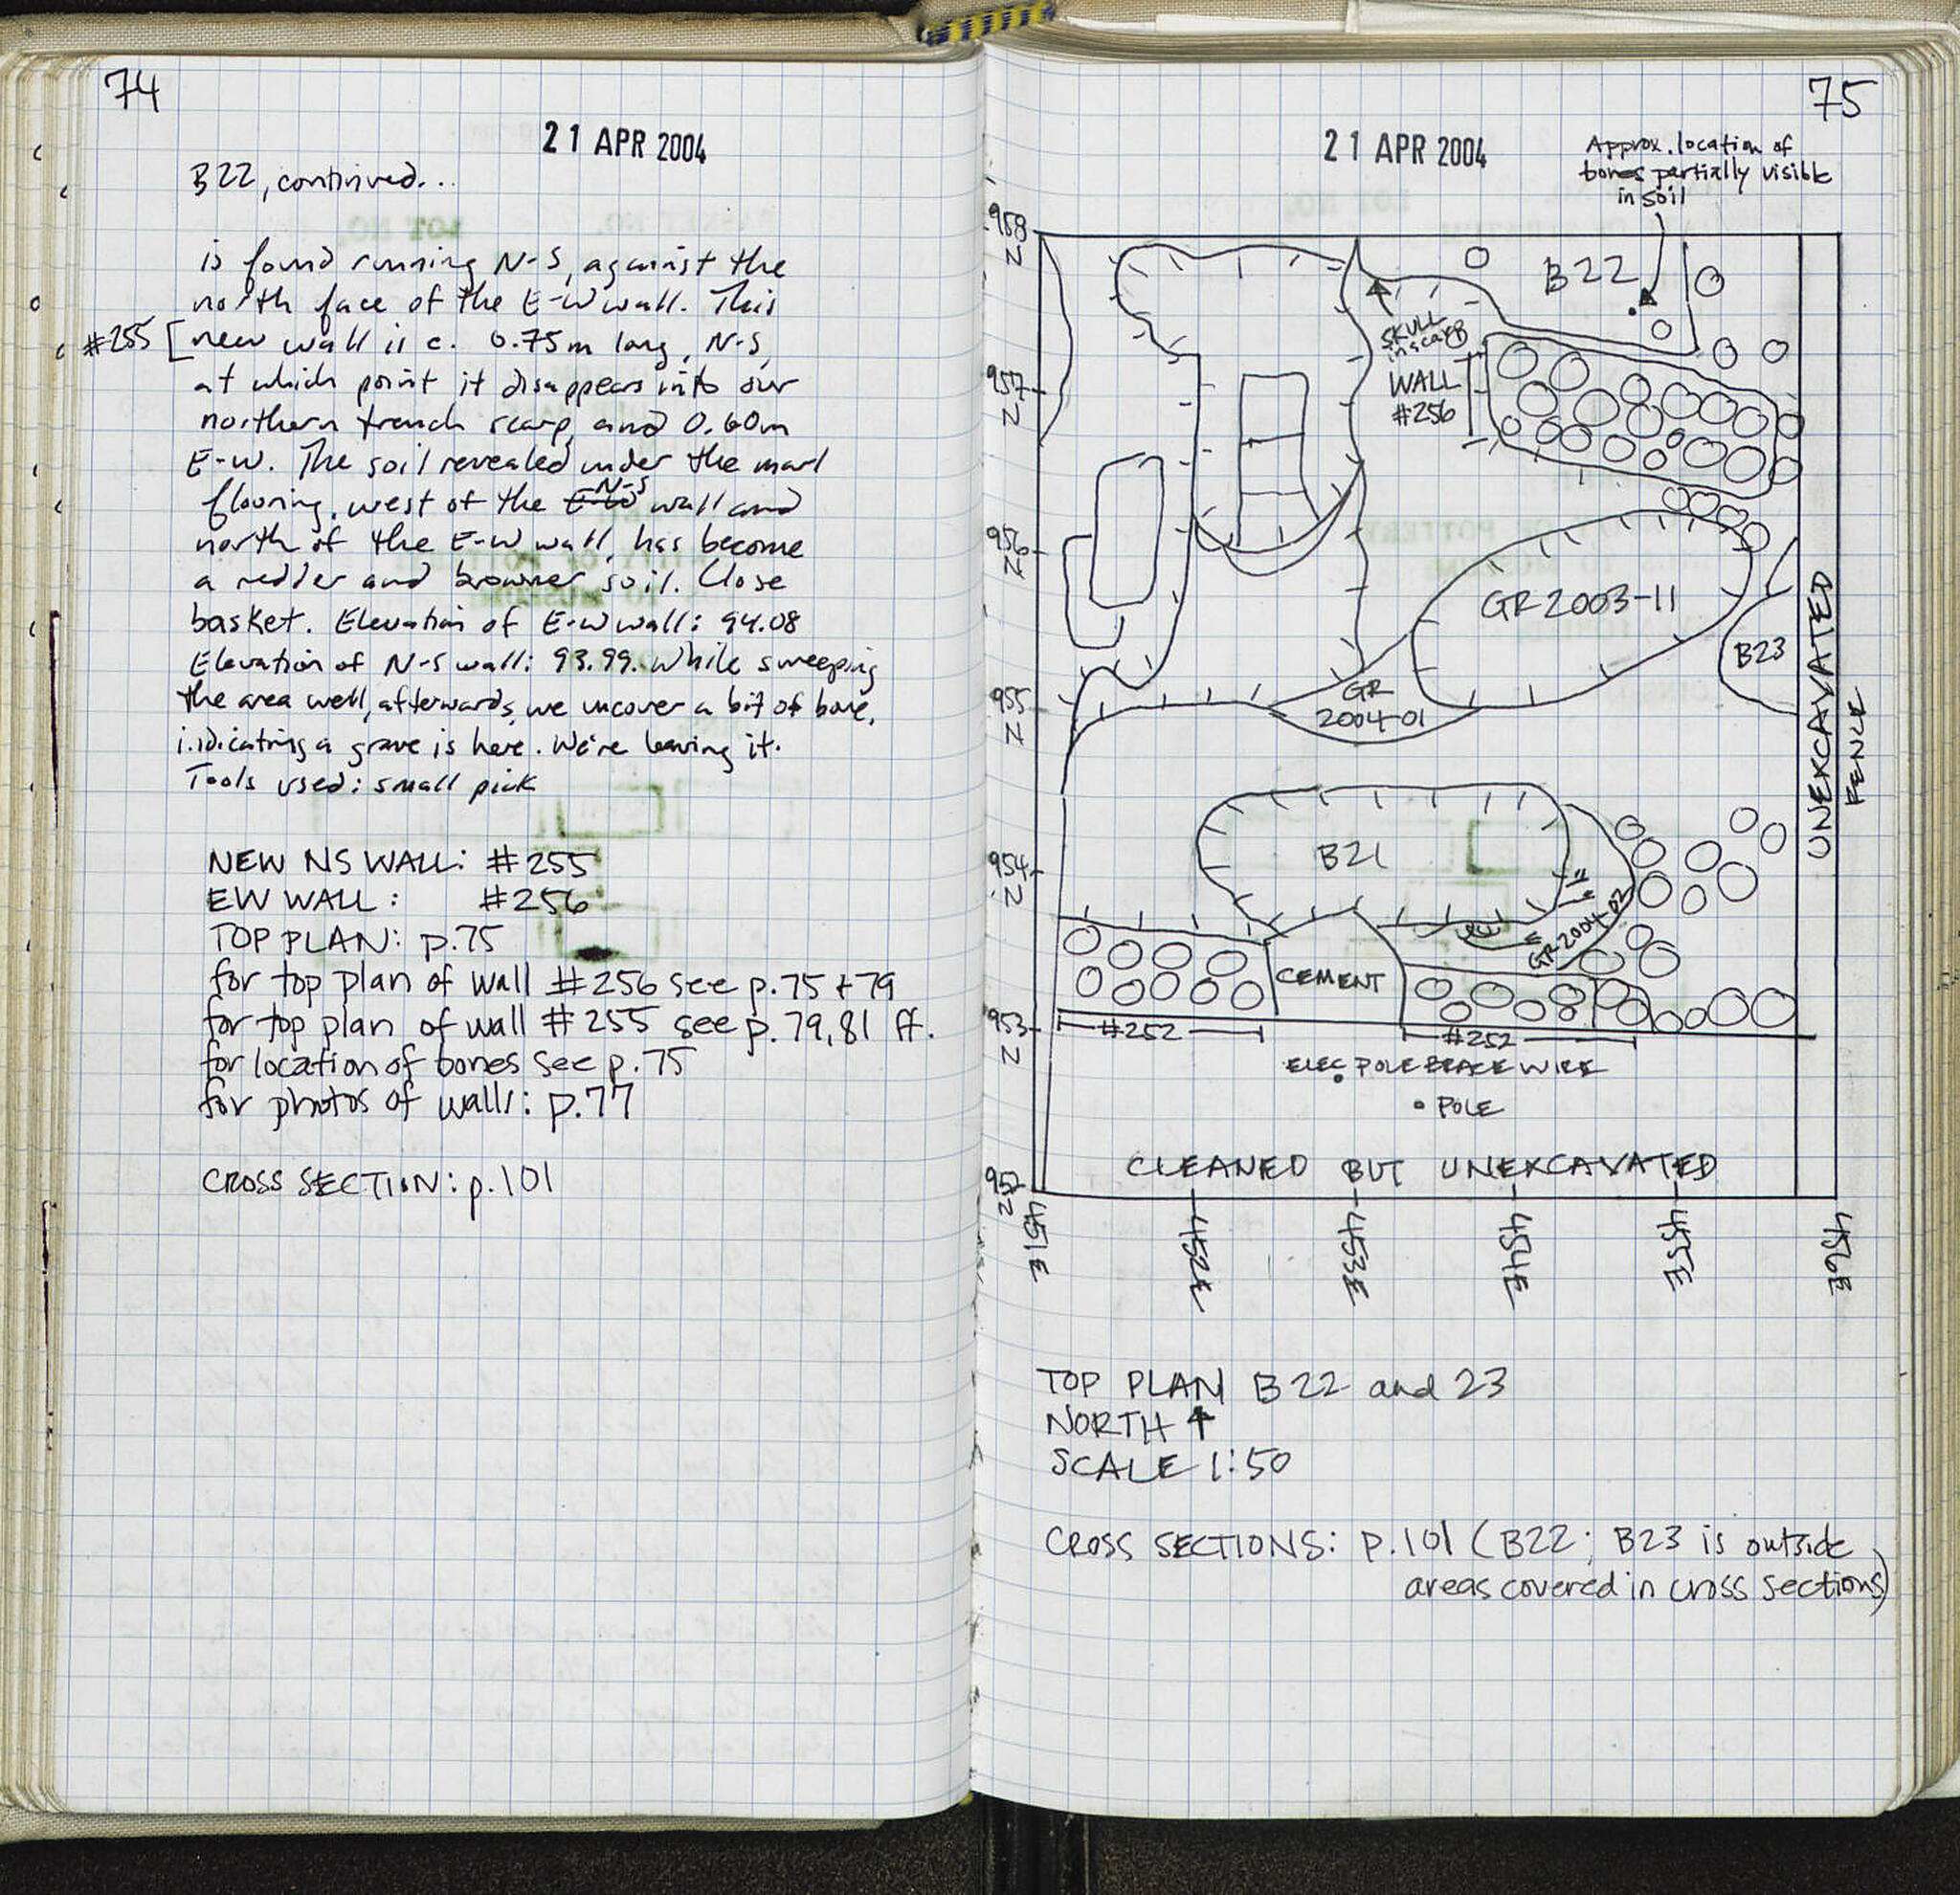 74
21 APR 2004
B22, continued...
is found running N-S, against the
north face of the E-W wall. This
#255 [new wall is c. 0.75m long, N-S,
at which point it disappears into our
northern trench scarp, and 0.60m
E-W. The soil revealed under the marl
flooring, west of the E-W N-S wall and
north of the E-W wall, has become
a redder and browner soil. Close
basket. Elevation of E-W wall: 94.08
Elevation of N-S wall: 93.99. While sweeping
the area well, afterwards, we uncover a bit of bone,
indicating a grave is here. We're leaving it.
Tools used: small pick
NEW NS WALL: #255
EW WALL: #256
TOP PLAN: p.75
for top plan of wall #256 see p.75 + 79
for top plan of wall #255 see p.79,81 ff.
for location of bones see p.75
for photos of walls: p.77
CROSS SECTION: p.101
75
21 APR 2004
Approx. location of
bones partially visible
in soil
958
N
B22
SKULL
in scarp
957
N
WALL
#256
956
N
GR2003-11
B23
UNEXCAVATED
FENCE
955
N
GR
2004-01
954
N
B21
GR2004-02
CEMENT
953
N
#252
#252
ELEC POLE BRACE WIRE
POLE
CLEANED BUT UNEXCAVATED
952
N
451E
452E
453E
454E
455E
456E
TOP PLAN B22 and 23
NORTH ↑
SCALE 1:50
CROSS SECTIONS: p.101 (B22; B23 is outside
areas covered in cross sections)